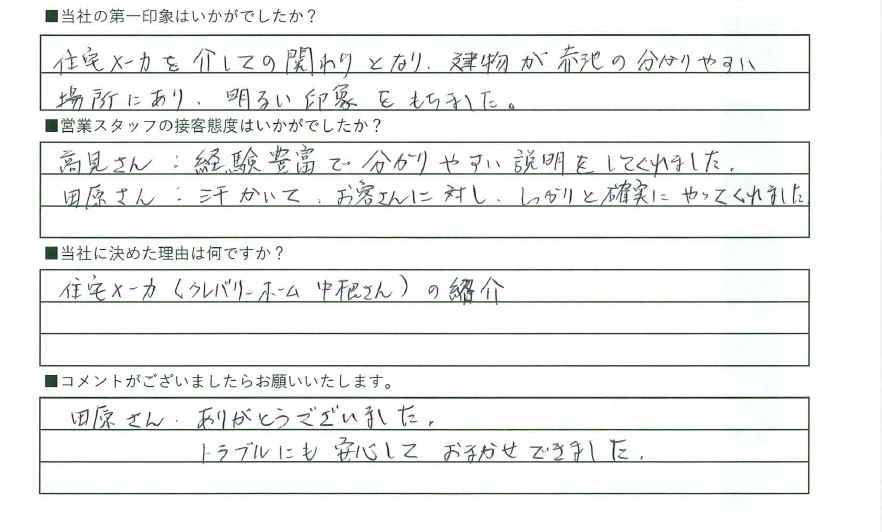 ■当社の第一印象はいかがでしたか？
住宅メーカを介しての関わりとなり、建物が赤池の分かりやすい
場所にあり、明るい印象をもちました。
■営業スタッフの接客態度はいかがでしたか？
高見さん：経験豊富で分かりやすい説明をしてくれました。
田原さん：汗かいて、お客さんに対し、しっかりと確実にやってくれました
■当社に決めた理由は何ですか？
住宅メーカ（クレバリーホーム 中根さん）の紹介
■コメントがございましたらお願いいたします。
田原さん、ありがとうございました。
トラブルにも安心しておまかせできました。